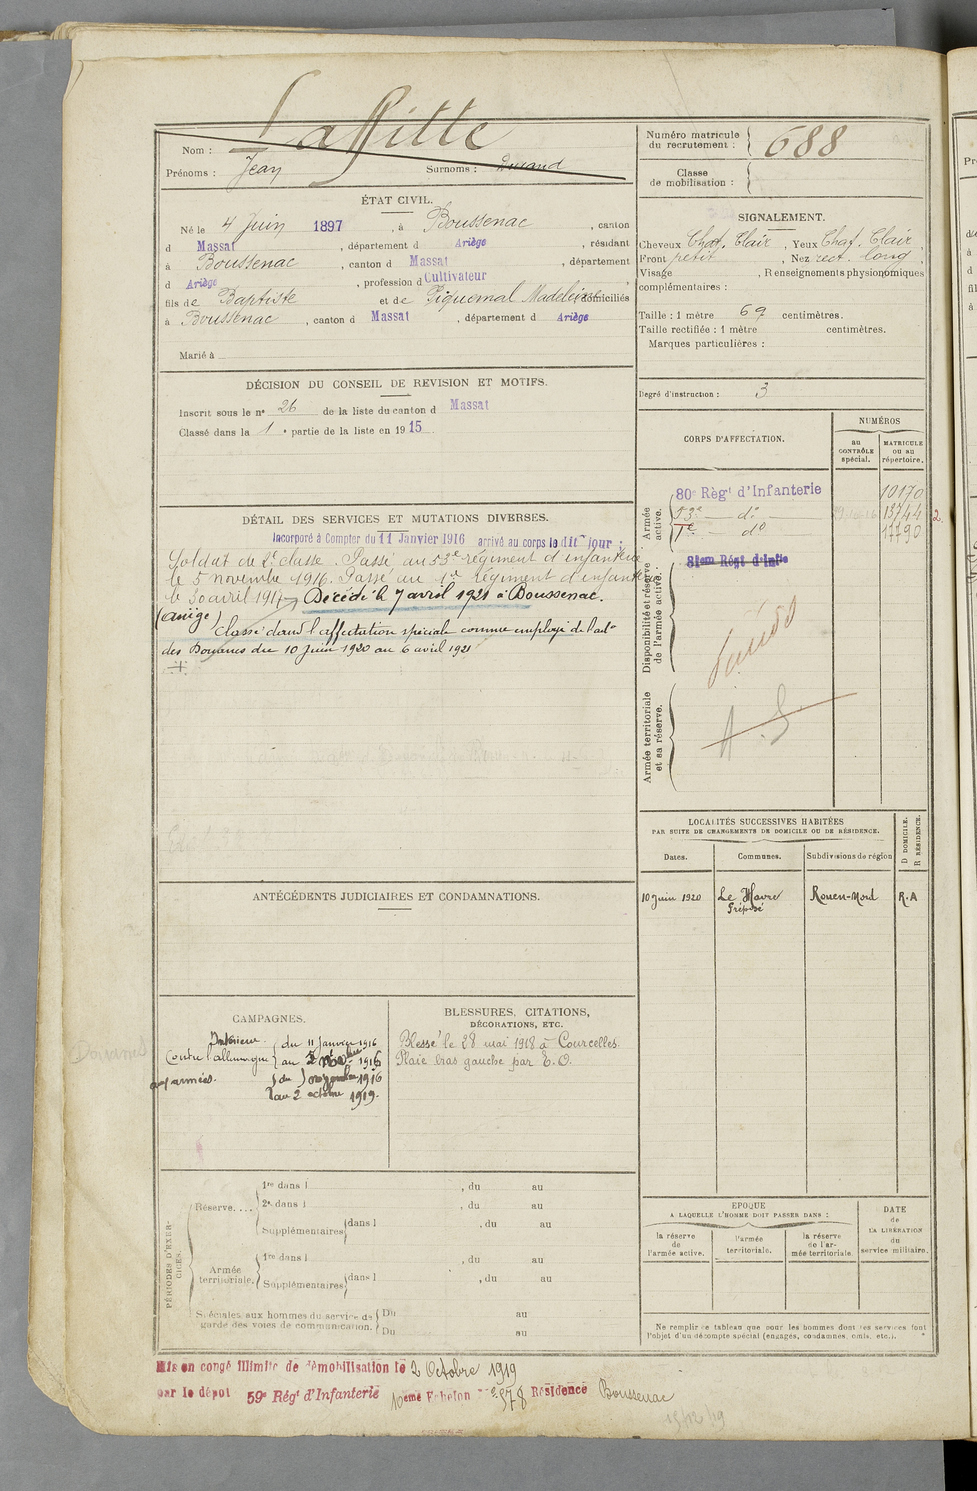 Nom : Laffitte
Prénoms : Jean Surnoms : Durand
Numéro matricule du recrutement : 688
Classe de mobilisation :
ÉTAT CIVIL.
Né le 4 Juin 1897, à Boussenac, canton
d Massat, département d Ariège, résidant
à Boussenac, canton d Massat, département
d Ariège, profession d Cultivateur
fils de Baptiste et de Piquemal Madeleine domiciliés
à Boussenac, canton d Massat, département d Ariège
Marié à
SIGNALEMENT.
Cheveux Chat. Clair, Yeux Chat. Clair,
Front petit, Nez rect. long,
Visage , Renseignements physionomiques
complémentaires :
Taille : 1 mètre 69 centimètres.
Taille rectifiée : 1 mètre centimètres.
Marques particulières :
Degré d'instruction : 3
DÉCISION DU CONSEIL DE REVISION ET MOTIFS.
Inscrit sous le n° 26 de la liste du canton d Massat
Classé dans la 1e partie de la liste en 1915
CORPS D'AFFECTATION.
NUMÉROS
au CONTRÔLE spécial.
MATRICULE ou au répertoire.
Armée active.
80e Régt d'Infanterie 10170
53e — do 13744
1er — do 17790
Disponibilité et réserve de l'armée active.
81eme Régt d'Infie
Armée territoriale et sa réserve.
DÉTAIL DES SERVICES ET MUTATIONS DIVERSES.
Incorporé à Compter du 11 Janvier 1916 arrivé au corps le dit jour ;
Soldat de 2e classe. Passé au 53e régiment d'infanterie
le 5 novembre 1916. Passé au 1er Régiment d'infanterie
le 30 avril 1917 Décédé le 7 avril 1921 à Boussenac.
(Ariège)
Classé dans l'affectation spéciale comme employé de l'adon
des Douanes du 10 Juin 1920 au 6 avril 1921
LOCALITÉS SUCCESSIVES HABITÉES
PAR SUITE DE CHANGEMENTS DE DOMICILE OU DE RÉSIDENCE.
Dates. Communes. Subdivisions de région D DOMICILE. R RÉSIDENCE.
10 Juin 1920 Le Havre Rouen-Nord R.A
Préposé
ANTÉCÉDENTS JUDICIAIRES ET CONDAMNATIONS.
CAMPAGNES.
Intérieur. du 11 janvier 1916
Contre l'allemagne au 1916
aux armées. du 1916
au 2 octobre 1919.
BLESSURES, CITATIONS, DÉCORATIONS, ETC.
Blessé le 28 mai 1918 à Courcelles.
Plaie bras gauche par E.O.
PÉRIODES D'EXERCICES.
Réserve....
1re dans l , du au
2e dans l , du au
Supplémentaires dans l , du au
Armée territoriale.
1re dans l , du au
Supplémentaires dans l , du au
Spéciales aux hommes du service de garde des voies de communication.
Du au
Du au
EPOQUE
A LAQUELLE L'HOMME DOIT PASSER DANS :
la réserve de l'armée active.
l'armée territoriale.
la réserve de l'armée territoriale.
DATE de LA LIBÉRATION du service militaire.
Ne remplir ce tableau que pour les hommes dont les services font
l'objet d'un décompte spécial (engagés, condamnés, omis, etc.).
Mis en congé illimité de démobilisation le 2 Octobre 1919
par le dépôt 59e Régt d'Infanterie 10eme Echelon n° 578 Résidence Boussenac